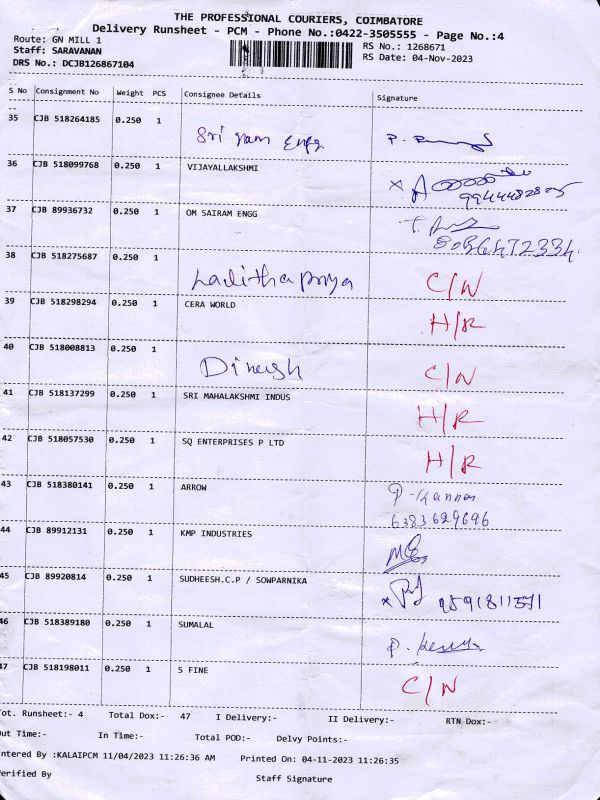 THE PROFESSIONAL COURIERS, COIMBATORE
Delivery Runsheet - PCM - Phone No.:0422-3505555 - Page No.:4
Route: GN MILL 1
RS No.: 1268671
Staff: SARAVANAN
RS Date: 04-Nov-2023
DRS No.: DCJB126867104
S No Consignment No Weight PCS Consignee Details Signature
35 CJB 518264185 0.250 1 Sri ram Engg
36 CJB 518099768 0.250 1 VIJAYALLAKSHMI
37 CJB 89936732 0.250 1 OM SAIRAM ENGG
38 CJB 518275687 0.250 1 Lalitha priya C/N
39 CJB 518298294 0.250 1 CERA WORLD H/R
40 CJB 518008813 0.250 1 Dinesh C/N
41 CJB 518137299 0.250 1 SRI MAHALAKSHMI INDUS H/R
42 CJB 518057530 0.250 1 SQ ENTERPRISES P LTD H/R
43 CJB 518380141 0.250 1 ARROW P. Kannan
6383629696
44 CJB 89912131 0.250 1 KMP INDUSTRIES
45 CJB 89920814 0.250 1 SUDHEESH.C.P / SOWPARNIKA 9591811571
46 CJB 518389180 0.250 1 SUMALAL
47 CJB 518198011 0.250 1 S FINE C/N
Tot. Runsheet:- 4 Total Dox:- 47 I Delivery:- II Delivery:- RTN Dox:-
Out Time:- In Time:- Total POD:- Delvy Points:-
Entered By :KALAIPCM 11/04/2023 11:26:36 AM Printed On: 04-11-2023 11:26:35
Verified By Staff Signature